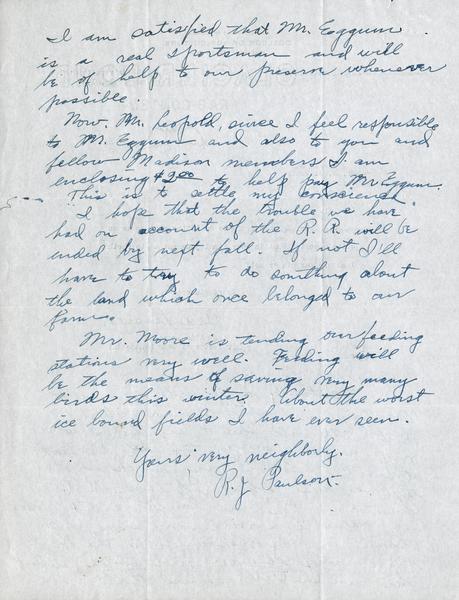 I am satisfied that Mr. Eggum
is a real sportsman and will
be of help to our preserve whenever
possible.
Now. Mr. Leopold, since I feel responsible
to Mr. Eggum and also to you and
fellow Madison members I am
enclosing $2.00 to help pay Mr Eggum.
This is to settle my conscience.
I hope that the trouble we have
had on account of the R.R. will be
ended by next fall. If not I'll
have to try to do something about
the land which once belonged to our
farm.
Mr. Moore is tending our feeding
stations very well. Feeding will
be the means of saving very many
birds this winter. About the worst
ice bound fields I have ever seen.
Yours very neighborly.
R. J. Paulson.